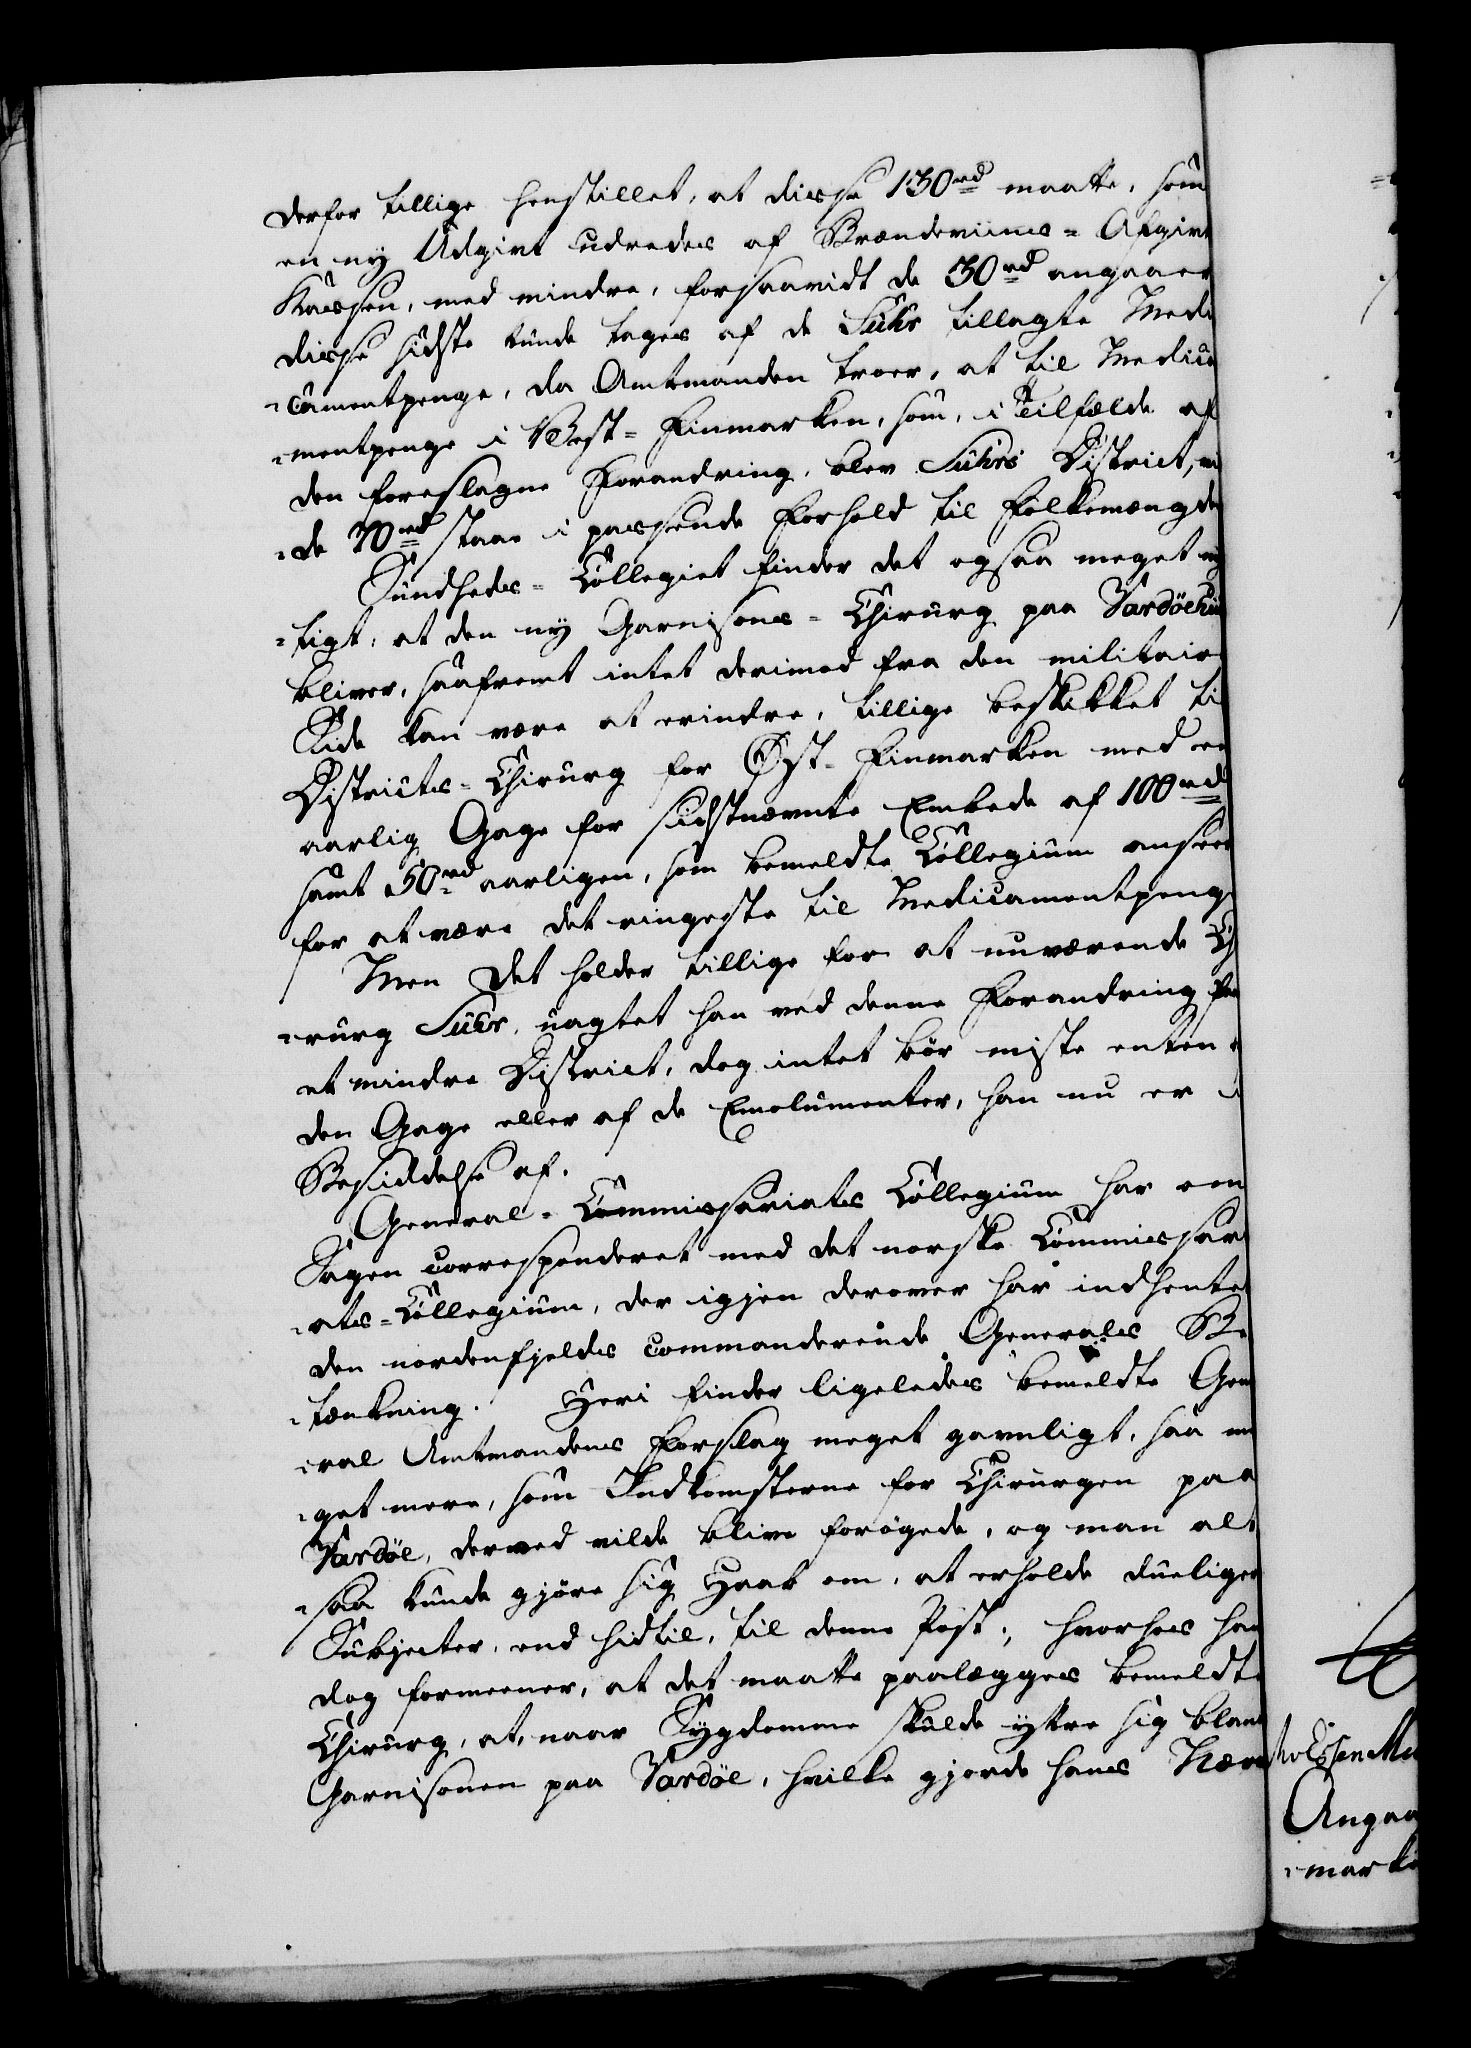 derfor tillige henstillet, at disse 130rd maatte, som
en ny Udgivt udredes af Brændeviins-Afgivt
Kassen, med mindre, forsaavidt de 30rd angaaer
disse sidste kunde tages af de Suhr tillagte Medi
camentpenge, da Amtmanden troer, at til Medica
mentpenge i Vest-Finmarken, som, i Tilfælde af
den foreslagne Forandring, blev Suhrs District, vil
de 70rd staae i passende Forhold til Folkemængde
Sundheds-Collegiet finder det ogsaa meget
tigt, at den ny Garnisons-Chirurg paa Vardöehuu
bliver, saafremt intet derimod fra den militair
Side kan være at erindre, tillige beskikket til
Districts-Chirurg for Øst-Finmarken med en
aarlig Gage for sidstnævnte Embede af 100rd
samt 50rd aarligen, som bemeldte Collegium anseer
for at være det ringeste til Medicamentpenge
Men det holder tillige for at nuværende Chi
rurg Suhr, uagtet han ved denne Forandring faa
et mindre District, dog intet bör miste enten
den Gage eller af de Emolumenter, han nu er i
Besiddelse af.
General-Commissariats Collegium har om
Sagen correspenderet med det norske Commissari
ats-Collegium, der igjen derover har indhentet
den nordenfjelds commanderende Generals Be
tænkning. Heri finder ligeledes bemeldte Gene
ral Amtmandens Forslag meget gavnligt, saa me
get mere, som Indkomsterne for Chirurgen paa
Vardöe, derved vilde blive forögede, og man alt
saa kunde gjöre sig Haab om, at erholde dueligere
Subjecter, end hidtil, til denne Post; hvorhos han
dog formeener, at det maatte paalægges bemeldte
Chirurg, at, naar Sygdomme skulde yttre sig bland
Garnisonen paa Vardöe, hvilke gjorde hans Nærv
Angaa
mark